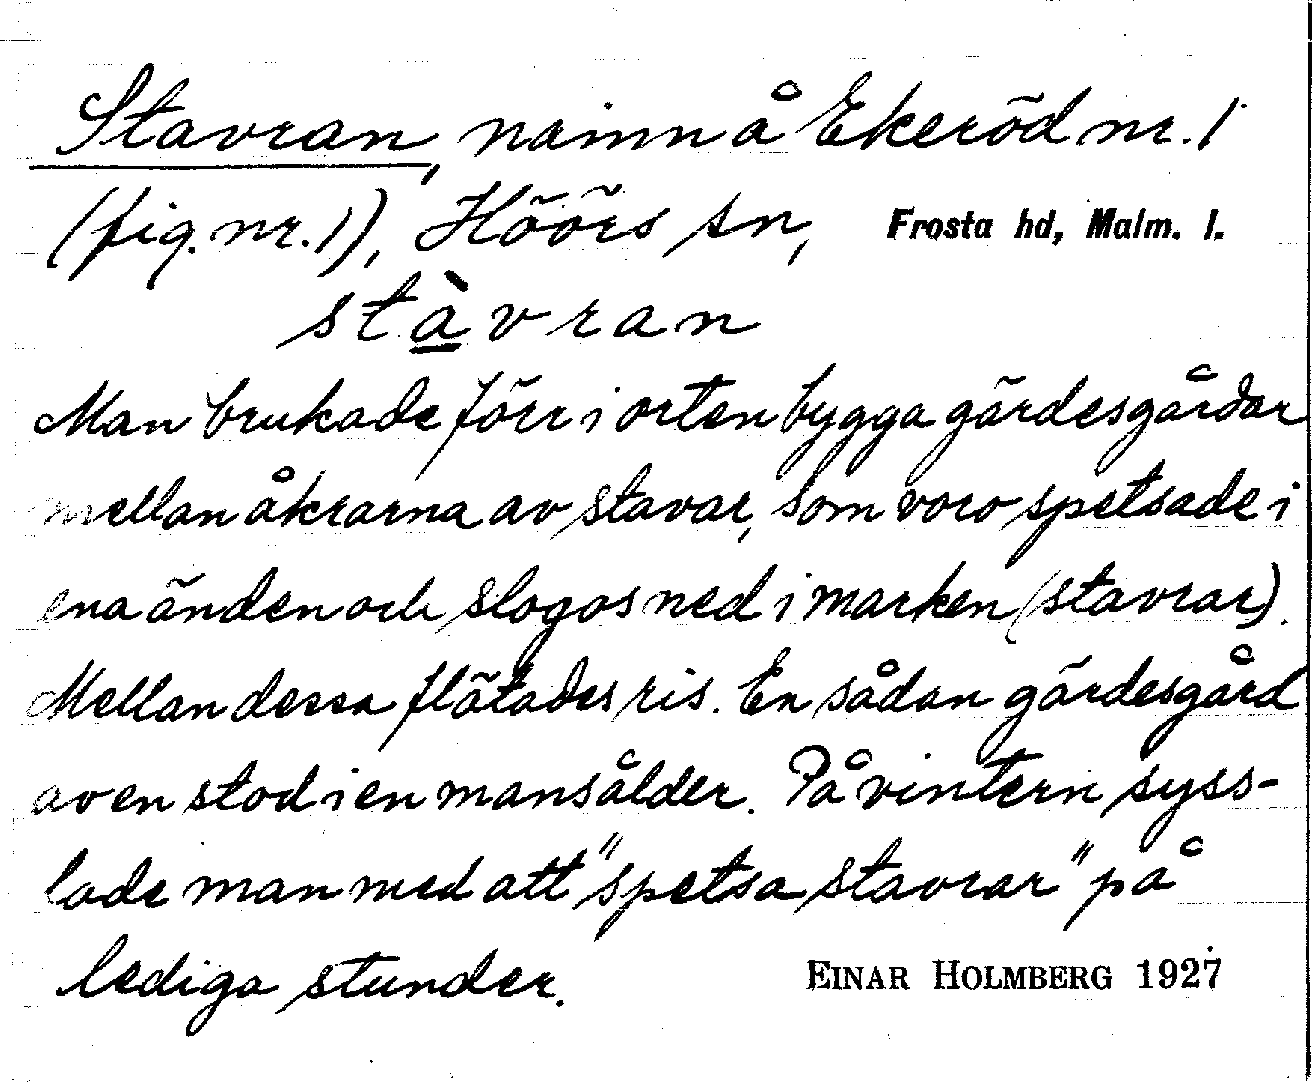 Stavran, namn å Ekeröd nr. 1
(fig. nr. 1), Höörs sn, Frosta hd, Malm. l.
stàvran
Man brukade förr i orten bygga gärdesgårdar
mellan åkrarna av stavar, som voro spetsade i
ena änden och slogos ned i marken (stavrar).
Mellan dessa flätades ris. En sådan gärdesgård
av en stod i en mansålder. På vintern syss-
lade man med att "spetsa stavrar" på
lediga stunder. EINAR HOLMBERG 1927